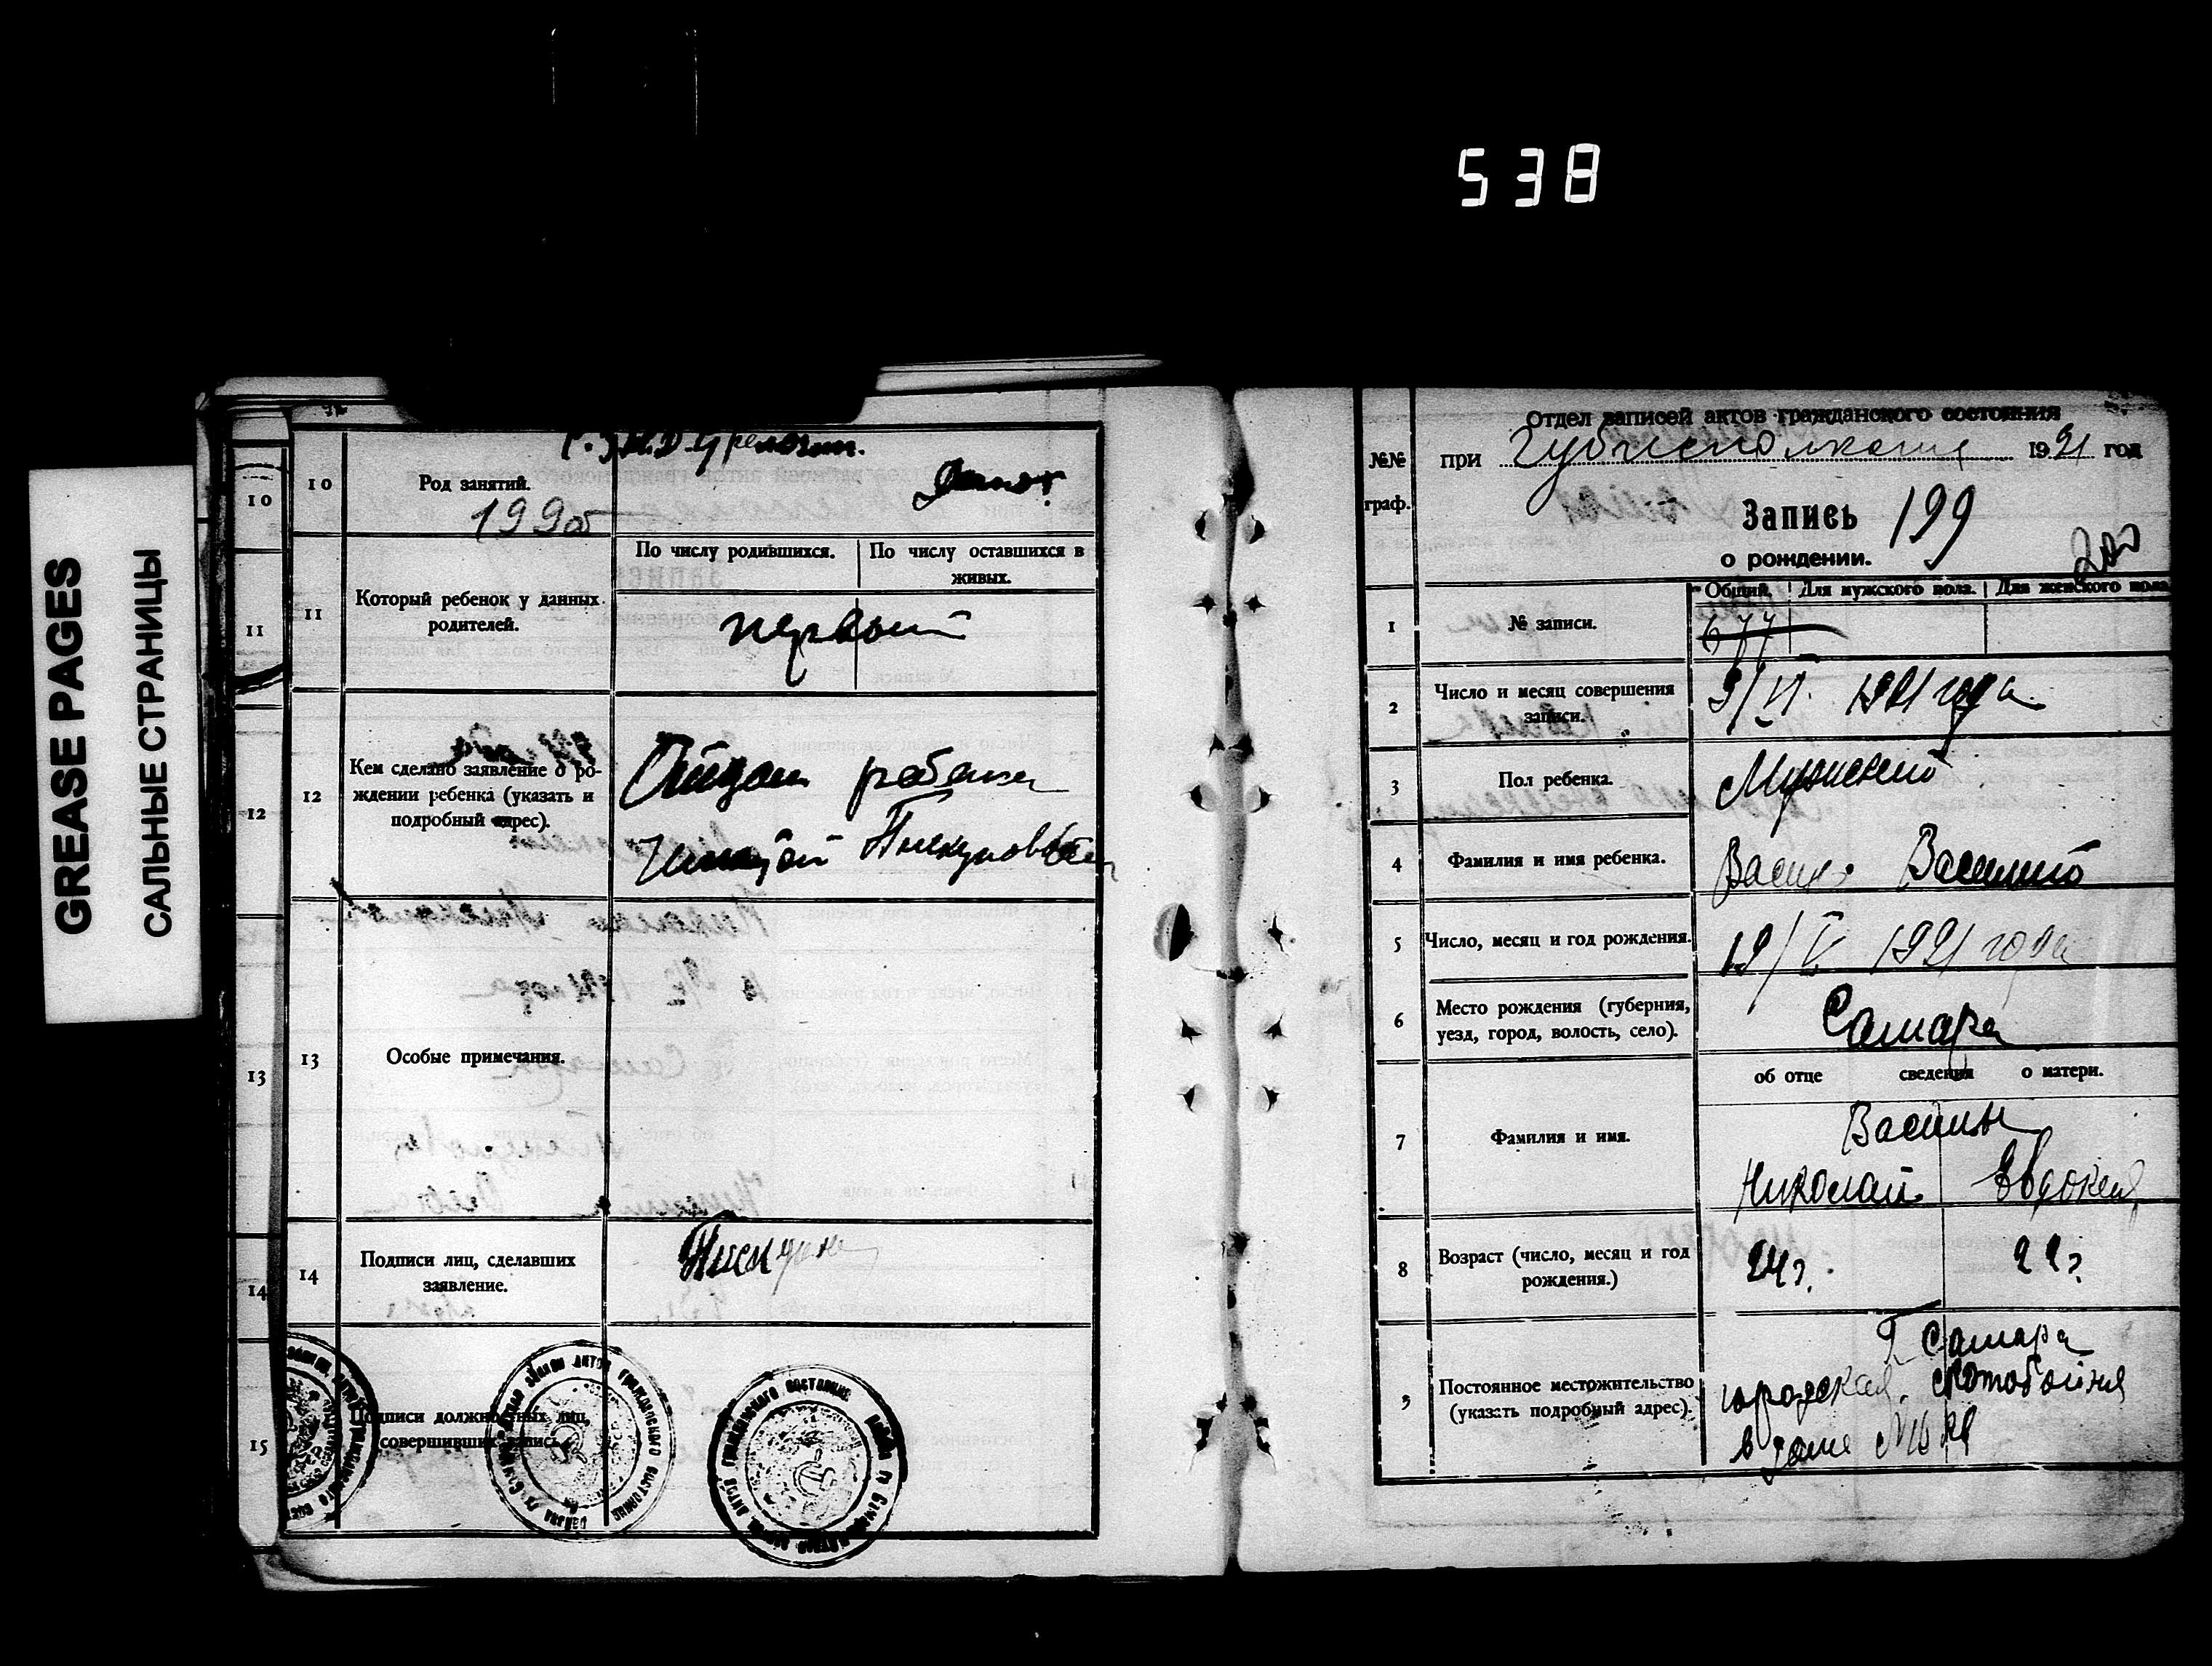 538
GREASE PAGES
САЛЬНЫЕ СТРАНИЦЫ
10
11
12
13
14
15
10
Род занятий.
199об
11
Который ребенок у данных родителей.
По числу родившихся.
По числу оставшихся в живых.
первый
12
Кем сделано заявление о ро-
ждении ребенка (указать и
подробный адрес).
Отцом ребенка
13
Особые примечания.
14
Подписи лиц, сделавших
заявление.
15
Подписи должностных лиц,
совершивших запись.
Отдел записей актов гражданского состояния
№№ граф.
при Губисполкоме 1921 год
Запись 199
о рождении.
200
1
№ записи.
Общий.
Для мужского пола.
Для женского пола.
677
2
Число и месяц совершения
записи.
9/VI 1921 года
3
Пол ребенка.
Мужской
4
Фамилия и имя ребенка.
Василий
5
Число, месяц и год рождения.
19/V 1921 года
6
Место рождения (губерния,
уезд, город, волость, село).
Самара
об отце сведения о матери.
7
Фамилия и имя.
Николай Евдокия
8
Возраст (число, месяц и год
рождения.)
24 г. 22 г.
9
Постоянное местожительство
(указать подробный адрес).
Г. Самара
городская скотобойня
в доме